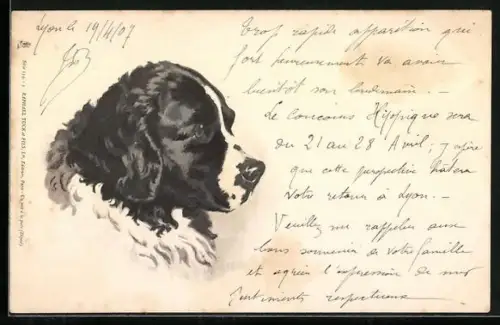 Lyon le 19/4/07
Trop rapide apparition qui
fort heureusement va avoir
bientôt son lendemain. _
Le concours Hippique sera
du 21 au 28 Avril; j'espère
que cette perspective hâtera
votre retour à Lyon. _
Veuillez me rappeler aux
bons souvenirs de votre famille
et agréer l'expression de mes
sentiments respectueux
RAPHAEL TUCK & FILS, Ld, Editeurs, Paris